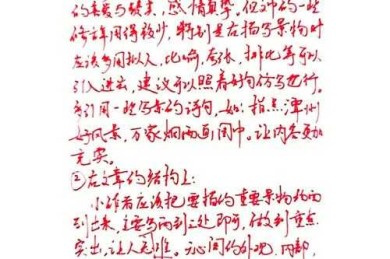 的喜爱与赞美,感情真挚,但文中的一些
修辞用得较少,特别是在描写景物时
应该多用拟人、比喻、夸张、排比等可以
引入进去,建议可以照着好句仿写也行。
多引用一些写景的诗句,如:指点潭州
好风景,万家烟雨画图中。让内容更加
充实。
②在文章的结构上:
小作者应该把要描的重要景物
到出来,主要写两到三处即可,做到重点
突出,让人无难。天心阁的外观,内部,